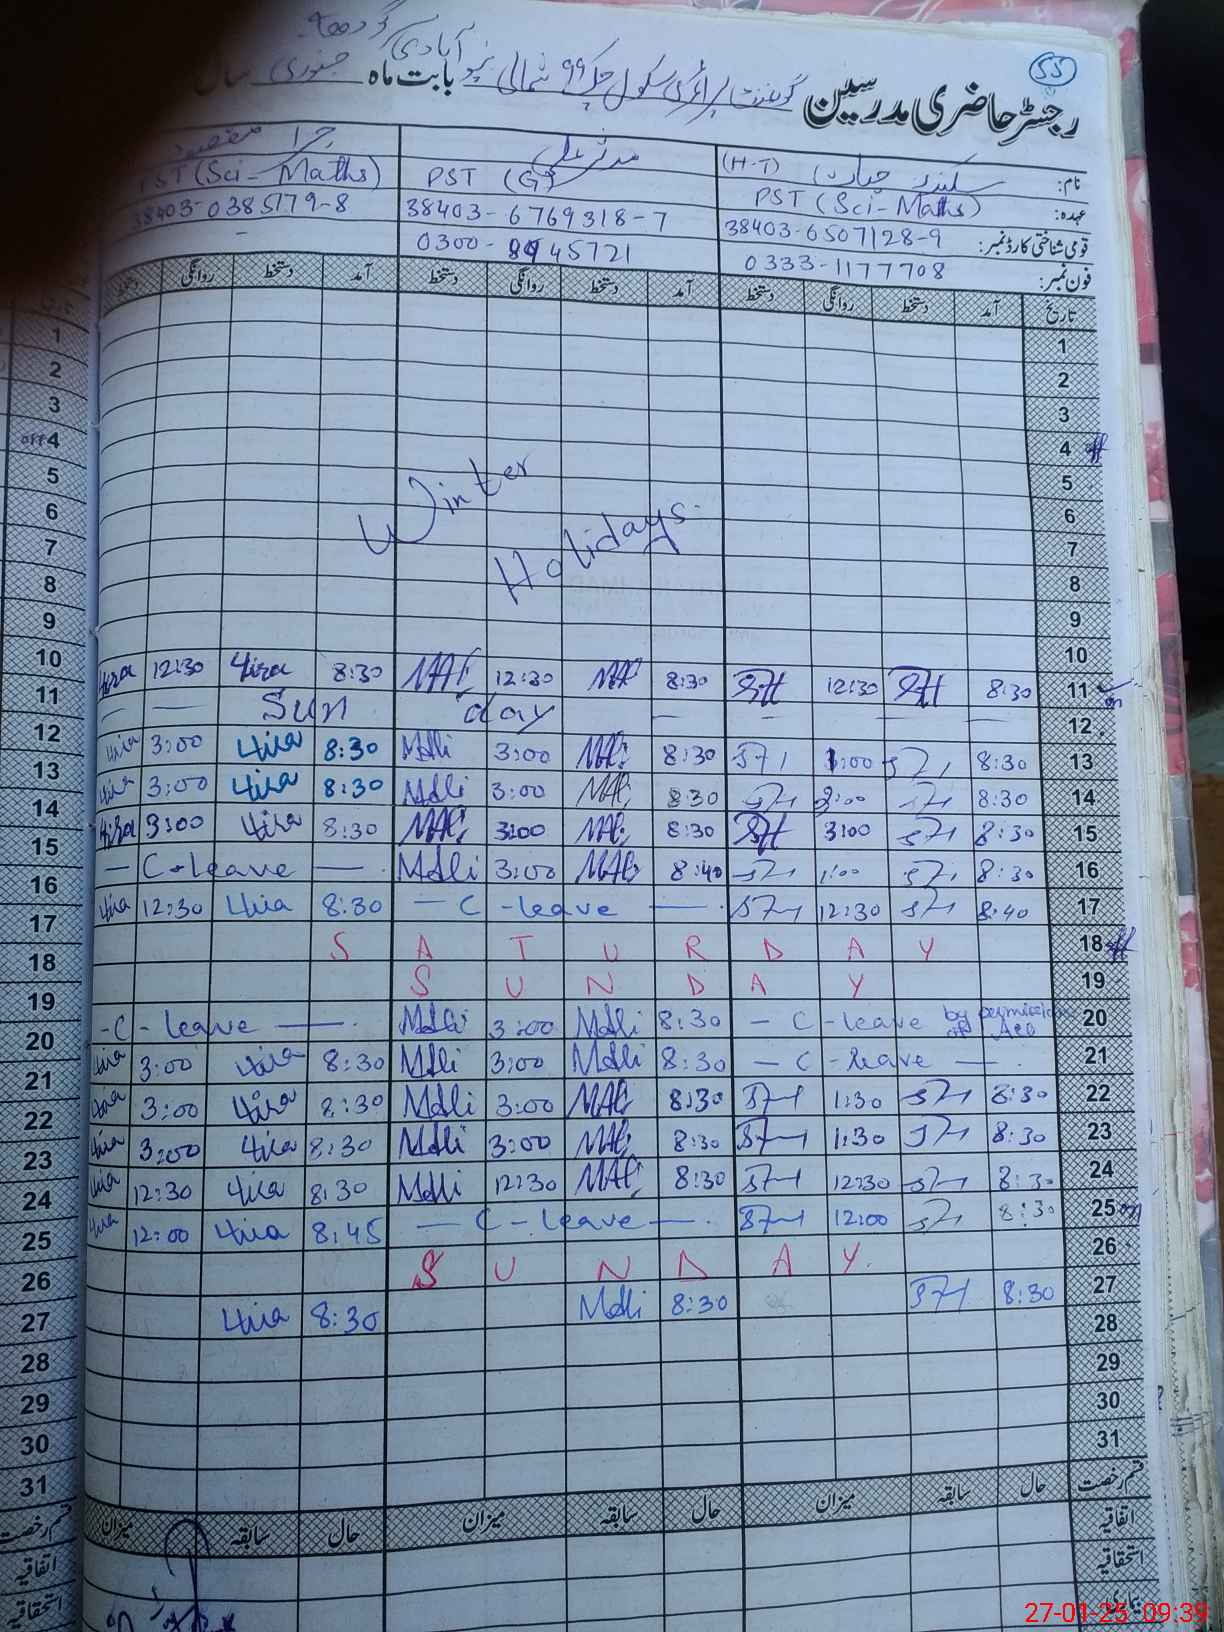 55
رجسٹر حاضری مدرسین گورنمنٹ پرائمری سکول چک 99 شمالی نیو آبادی بابت ماہ جنوری سال
نام: سکندر حیات (H-T) مدثر علی حرا
عہدہ: PST (Sci-Maths) PST (G) PST (Sci-Maths)
قومی شناختی کارڈ نمبر: 38403-6507128-9 38403-6769318-7 38403-0385179-8
فون نمبر: 0333-1177708 0300-8945721 -
تاریخ آمد دستخط روانگی دستخط آمد دستخط روانگی دستخط آمد دستخط روانگی دستخط
1
2
3
4
5
6
7
8
9
10
Winter Holidays.
11 8:30 SH 12:30 SH 8:30 MAli 12:30 MAli 8:30 Hira 12:30 Hira
12 — — — Sunday — —
13 8:30 SH 1:00 SH 8:30 MAli 3:00 MAli 8:30 Hira 3:00 Hira
14 8:30 SH 3:00 SH 8:30 MAli 3:00 MAli 8:30 Hira 3:00 Hira
15 8:30 SH 3:00 SH 8:30 MAli 3:00 MAli 8:30 Hira 3:00 Hira
16 8:30 SH 1:00 SH 8:40 MAli 3:00 MAli — C-leave —
17 8:40 SH 12:30 SH — C-leave — 8:30 Hira 12:30 Hira
18 SATURDAY
19 SUNDAY
20 — C-leave by permission of AEO 8:30 MAli 3:00 MAli -C-leave —
21 — C-leave — 8:30 MAli 3:00 MAli 8:30 Hira 3:00 Hira
22 8:30 SH 1:30 SH 8:30 MAli 3:00 MAli 8:30 Hira 3:00 Hira
23 8:30 SH 1:30 SH 8:30 MAli 3:00 MAli 8:30 Hira 3:00 Hira
24 8:30 SH 12:30 SH 8:30 MAli 12:30 MAli 8:30 Hira 12:30 Hira
25 8:30 SH 12:00 SH — C-leave — 8:45 Hira 12:00 Hira
26 SUNDAY.
27 8:30 SH 8:30 MAli 8:30 Hira
28
29
30
31
قسم رخصت حال سابقہ میزان حال سابقہ میزان حال سابقہ میزان
اتفاقیہ
استحقاقیہ
بیماری
1
2
3
off 4
5
6
7
8
9
10
11
12
13
14
15
16
17
18
19
20
21
22
23
24
25
26
27
28
29
30
31
قسم رخصت
اتفاقیہ
استحقاقیہ
27-01-25 09:39